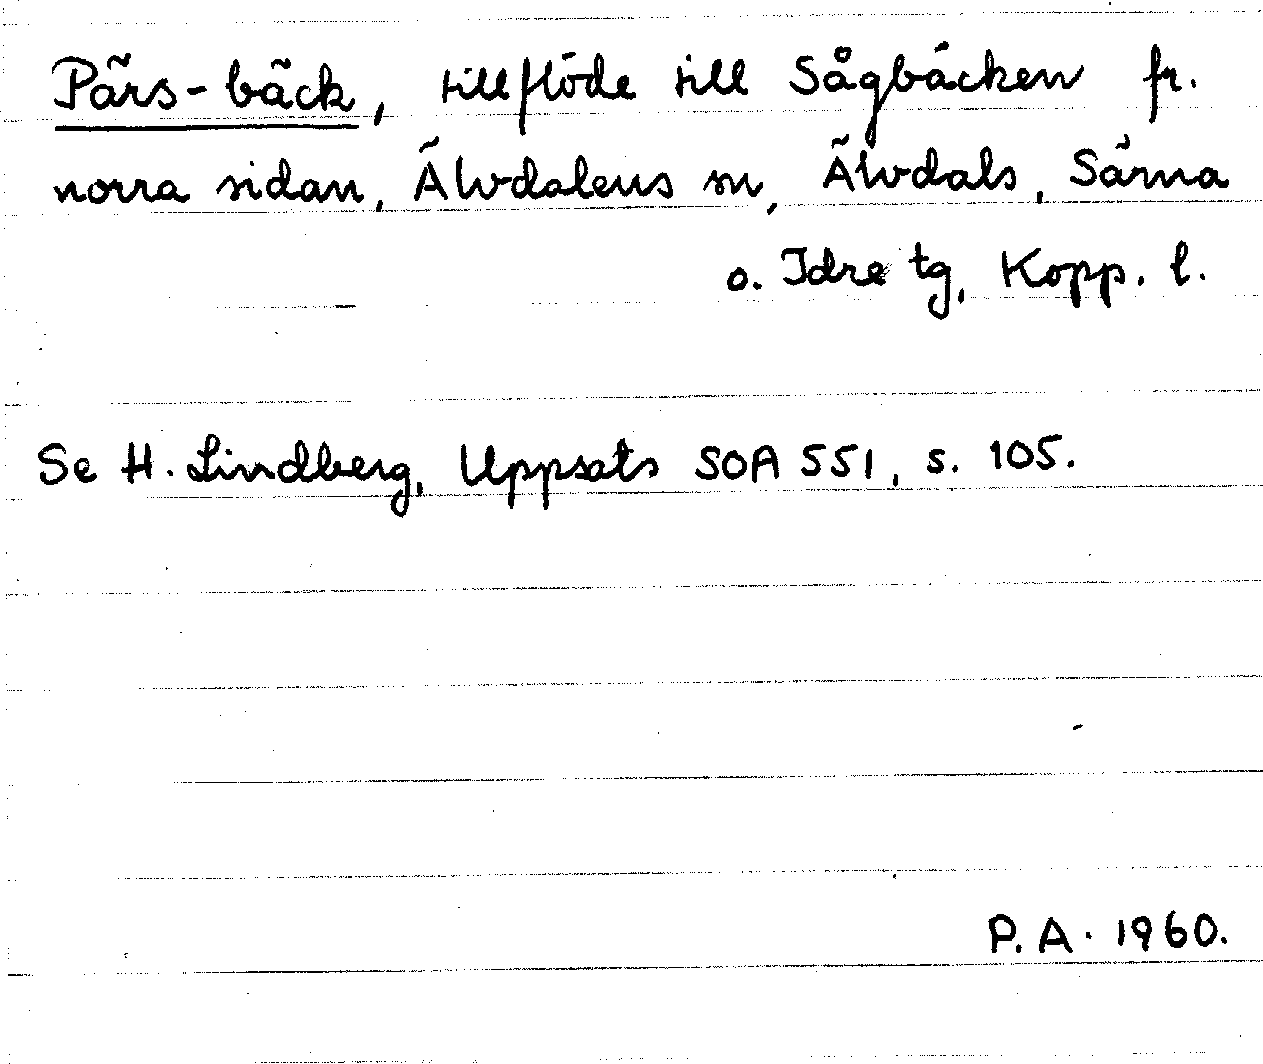 Pärs-bäck, tillflöde till Sågbäcken fr.
norra sidan, Älvdalens sn, Älvdals, Särna
o. Idre tg, Kopp. l.
Se H. Lindberg, Uppsats SOA 551, s. 105.
P.A. 1960.